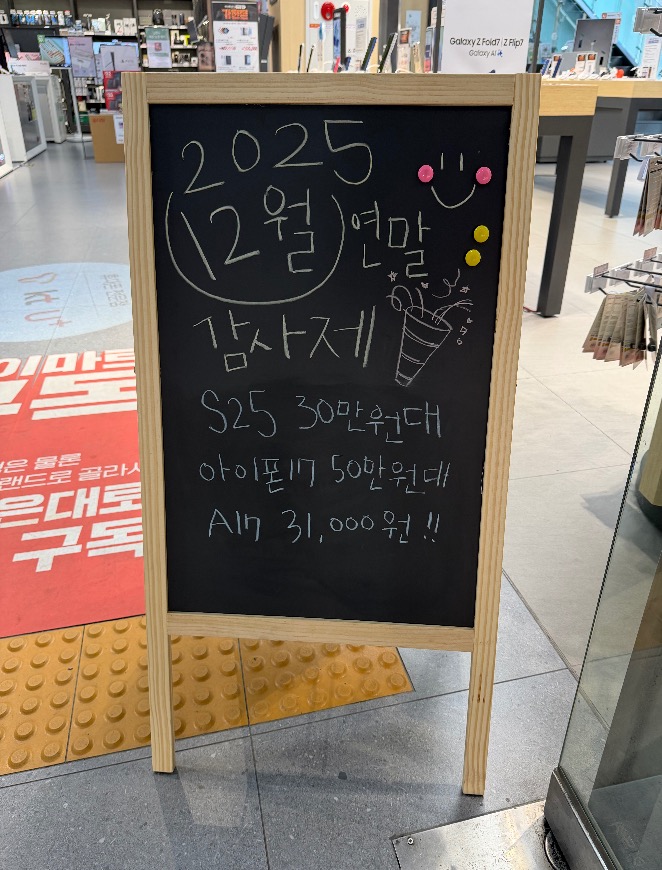 Galaxy Z Fold7 | Z Flip7
Galaxy AI
2025
12월 연말
감사제
S25 30만원대
아이폰17 50만원대
A17 31,000원!!
이마트
구독
은 물론
랜드로 골라
은대로
구독